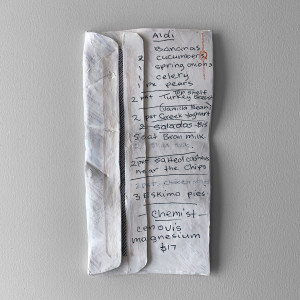 Aldi
Bananas
2 cucumbers 2
1 spring onions
1 celery
1 pears
2 Turkey
(Vanilla Bean)
2 Greek Yoghurt
2 Saladas
Oat Bran milk
2 salted cashews
near the chips
3 Eskimo pies
Chemist
cenovis
magnesium
$17